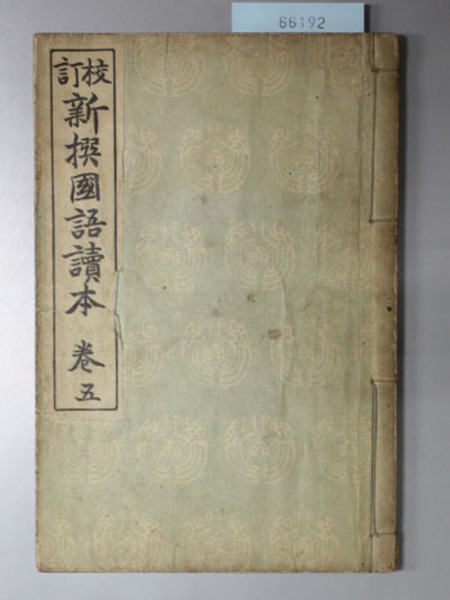 66192
校訂
新撰國語讀本 卷五